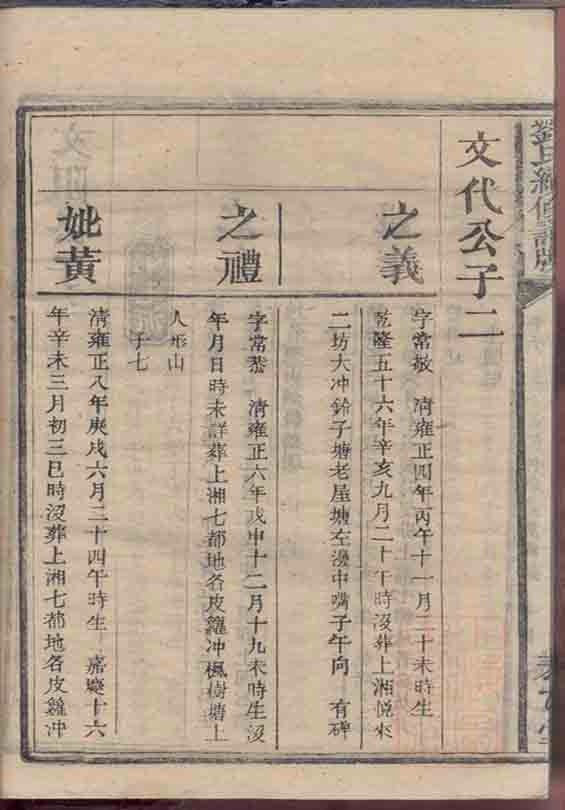 文代公子二
之義
字常敬 清雍正四年丙午十一月二十未時生
乾隆五十六年辛亥九月二十午時沒葬上湘悅來
二坊大冲鈴子塘老屋塘左邊中嘴子午向 有碑
之禮
字常恭 清雍正六年戊申十二月十九未時生沒
年月日時未詳葬上湘七都地名皮籮冲楓樹塘上
人形山
子七
妣黃
清雍正八年庚戌六月二十四午時生 嘉慶十六
年辛未三月初三巳時沒葬上湘七都地名皮籮冲